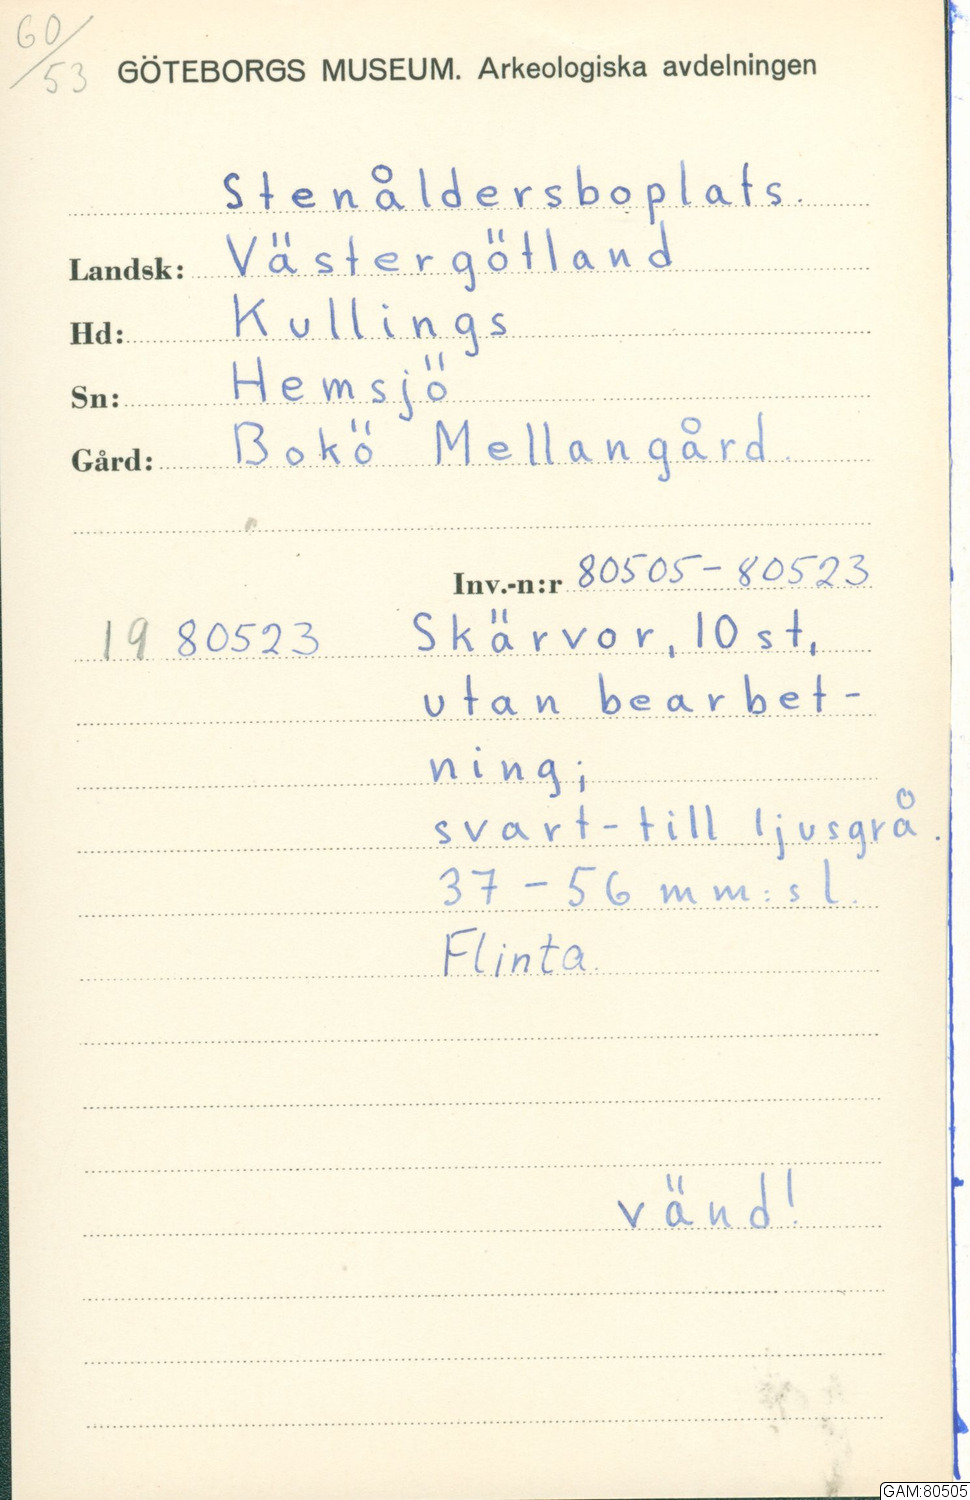 60/53
GÖTEBORGS MUSEUM. Arkeologiska avdelningen
Stenåldersboplats.
Landsk: Västergötland
Hd: Kullings
Sn: Hemsjö
Gård: Bokö Mellangård.
Inv.-n:r 80505-80523
19 80523 Skärvor, 10 st,
utan bearbet-
ning;
svart- till ljusgrå.
37-56 mm:s l.
Flinta.
vänd!
GAM:80505